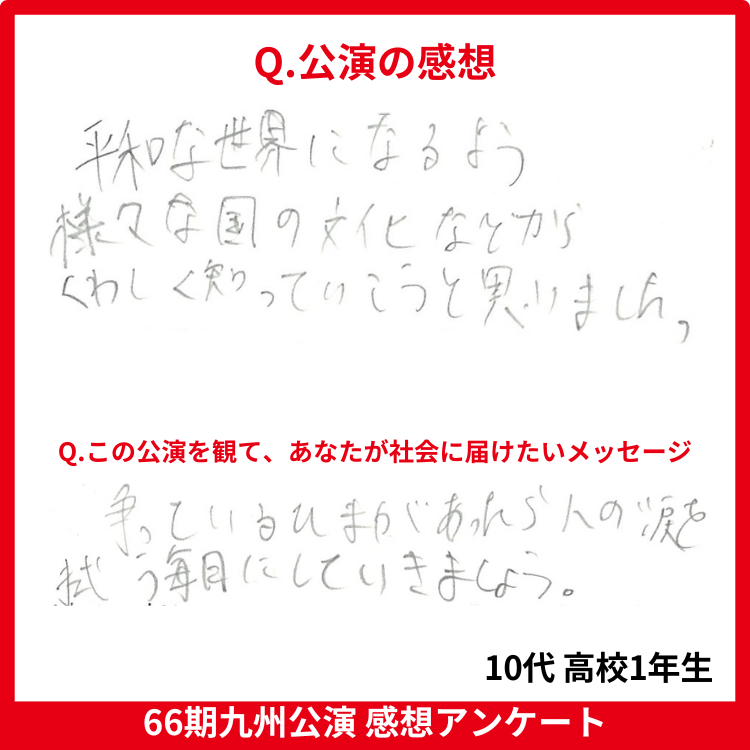 Q.公演の感想
平和な世界になるよう
様々な国の文化などから
くわしく知っていこうと思いました。
Q.この公演を観て、あなたが社会に届けたいメッセージ
争っているひまがあったら人の涙を
拭う毎日にしていきましょう。
10代 高校1年生
66期九州公演 感想アンケート